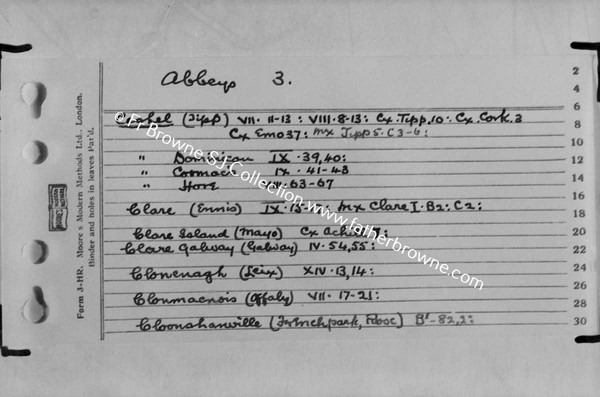 Abbeys 3.
Cashel (Tipp) VII. 11-13: VIII. 8-13: Cx. Tipp. 10. Cx. Cork. 3
Cx Emo 37: Mx Tipp 5. C3-6:
" Dominican IX. 39, 40:
" Cormac IX. 41-43
" Hore 63-67
Clare (Ennis) IX. Mx Clare I. B2: C2:
Clare Island (Mayo) Cx Achill
Clare Galway (Galway) IV. 54, 55:
Clonenagh (Leix) XIV. 13, 14:
Clonmacnois (Offaly) VII. 17-21:
Cloonshanville (Frenchpark, Rosc) B'-82, 2:
2
4
6
8
10
12
14
16
18
20
22
24
26
28
30
Form 3-HR. Moore's Modern Methods Ltd., London.
Binder and holes in leaves Pat'd.
© Fr Browne SJ Collection, www.fatherbrowne.com